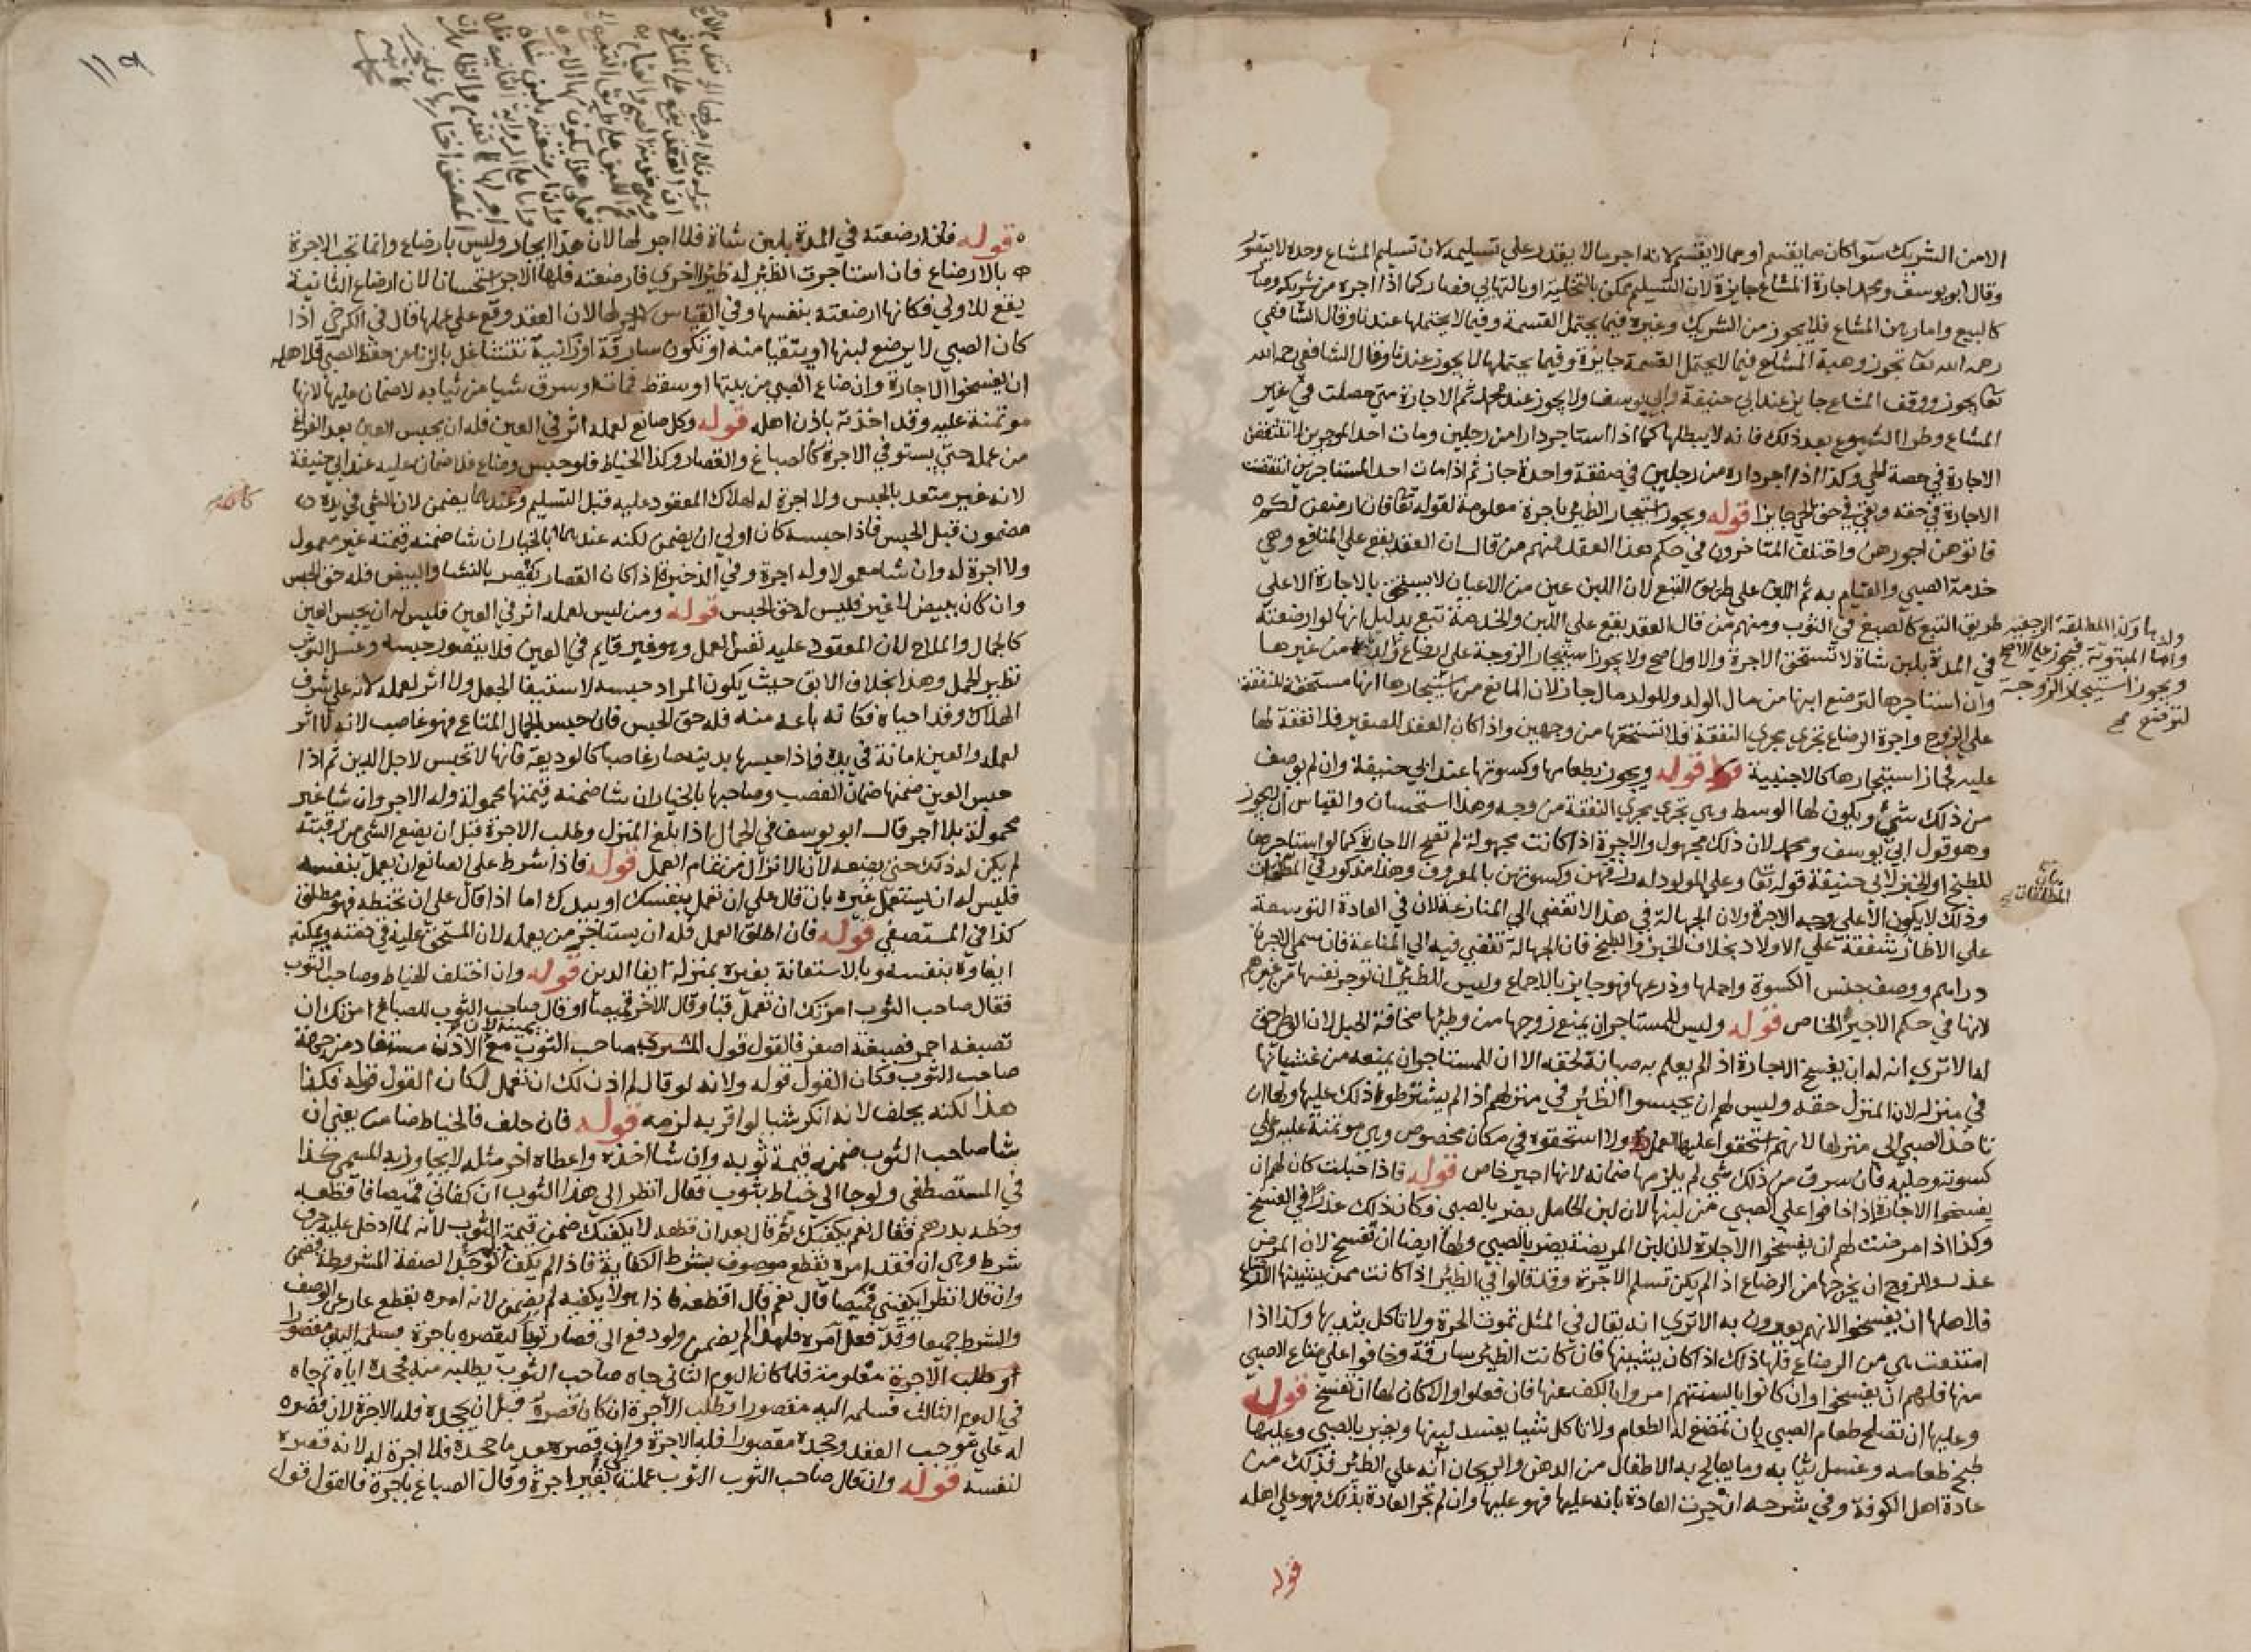 الا من الشريك سوآ كان مما يقسم او مما لا يقسم لانه اجر ما لا يقدر علي تسليمه لان تسليم المشاع وحده لا يتصور
وقال ابو يوسف ومحمد اجارة المشاع جايزة لان التسليم ممكن بالتخلية او بالتهايي فصار كما اذا اجره من شريكه وصار
كالبيع واما رهن المشاع فلا يجوز من الشريك وغيره فيما يحتمل القسمة وفيما لا يحتملها عندنا وقال الشافعي
رحمه الله تعا يجوز وهبة المشاع فيما لا يحتمل القسمة جايزة وفيما يحتملها لا يجوز عندنا وقال الشافعي رحمه الله
تعا يجوز ووقف المشاع جايز عند ابي حنيفة وابي يوسف ولا يجوز عند محمد ثم الاجارة متي حصلت في غير
المشاع وطرا الشيوع بعد ذلك فانه لا يبطلها كما اذا استاجر دارا من رجلين ومات احد الموجرين انتقضت
الاجارة في حصة الحي وكذا اذا اجر داره من رجلين في صفقة واحدة جاز ثم اذا مات احد المستاجرين انتقضت
الاجارة في حقه وبقي في حق الحي جايزا قوله ويجوز استيجار الظئر باجرة معلومة لقوله تعا فان ارضعن لكم
فاتوهن اجورهن واختلف المتاخرون في حكم هذا العقد منهم من قال ان العقد يقع علي المنافع وهي
خدمة الصبي والقيام به ثم اللبن علي طريق التبع لان اللبن عين من الاعيان لا يستحق بالاجارة الا علي
طريق التبع كالصبغ في الثوب ومنهم من قال العقد يقع علي اللبن والخدمة تبع بدليل انها لو ارضعته
في المدة بلبن شاة لا تستحق الاجرة والاول اصح ولا يجوز استيجار الزوجة علي ارضاع ولده من غيرها
وان استاجرها لترضع ابنها من مال الولد وللولد مال جاز لان المانع من استيجارها انها مستحقة للنفقة
علي الزوج واجرة الرضاع تجري مجري النفقة فلا تستحقها من وجهين واذا كان العقد للصغير فلا نفقة لها
عليه فجاز استيجارها كالاجنبية قوله ويجوز بطعامها وكسوتها عند ابي حنيفة وان لم يوصف
من ذلك شئ ويكون لها الوسط وهي تجري مجري النفقة من وجه وهذا استحسان والقياس ان لا يجوز
وهو قول ابي يوسف ومحمد لان ذلك مجهول والاجرة اذا كانت مجهولة لم تصح الاجارة كما لو استاجرها
للطبخ او الخبز لابي حنيفة قوله تعا وعلي المولود له رزقهن وكسوتهن بالمعروف وهذا مذكور في المطلقات
وذلك لا يكون الا علي وجه الاجرة ولان الجهالة في هذا لا تفضي الي المنازعة لان في العادة التوسعة
علي الاظار شفقة علي الاولاد بخلاف الخبز والطبخ فان الجهالة تفضي فيه الي المنازعة فان سمي الاجرة
دراهم ووصف جنس الكسوة واجلها وذرعها فهو جايز بالاجماع وليس للظئر ان توجر نفسها من غيرهم
لانها في حكم الاجير الخاص قوله وليس للمستاجر ان يمنع زوجها من وطئها مخافة الحبل لان الوطي حق
له الا تري انه له ان يفسخ الاجارة اذا لم يعلم به صيانة لحقه الا ان للمستاجر ان يمنعه من غشيانها
في منزله لان المنزل حقه وليس لهم ان يحبسوا الظئر في منزلهم اذا لم يشترطوا ذلك عليها ولها ان
تاخذ الصبي الي منزلها لانهم استحقوا عليها العمل ولا استحقوه في مكان مخصوص وهي موتمنة عليه وعلي
كسوته وحليه فان سرق من ذلك شي لم يلزمها ضمانه لانها اجير خاص قوله فاذا حبلت كان لهم ان
يفسخوا الاجارة اذا خافوا علي الصبي من لبنها لان لبن الحامل يضر بالصبي وكان ذلك عذرا في الفسخ
وكذا اذا مرضت لهم ان يفسخوا الاجارة لان لبن المريضة يضر بالصبي ولها ايضا ان تفسخ لان المرض
عذر وللزوج ان يخرجها من الرضاع اذا لم يكن تسلم الاجرة وقد قالوا في الظئر اذا كانت ممن يشينها
فلاهلها ان يفسخوا لانهم يعيرون به الا تري انه يقال في المثل تموت الحرة ولا تاكل بثديها وكذا اذا
امتنعت هي من الرضاع فلها ذلك اذا كان يشينها فان كانت الظئر سارقة وخافوا علي متاع الصبي
منها فلهم ان يفسخوا وان كانوا بالسنتهم امروا بالكف عنها فان فعلوا والا كان لها ان تفسخ قوله
وعليها ان تصلح طعام الصبي بان تمضغ له الطعام ولا تاكل شيا يفسد لبنها ويضر بالصبي وعليها
طبخ طعامه وغسل ثيابه وما يعالج به الاطفال من الدهن والريحان انه علي الظئر فذلك من
عادة اهل الكوفة وفي شرحه ان جرت العادة بانه عليها فهو عليها وان لم تجر العادة بذلك فهو علي اهله
قوله
وكذا المطلقة الرجعية
واما المبتوتة فيجوز علي الاصح
ويجوز استيجار الزوجة
لترضع
المطلقات
١١٩
قوله فان ارضعته في المدة بلبن شاة فلا اجر لها لان هذا ايجار وليس بارضاع وانما تجب الاجرة
بالارضاع فان استاجرت الظئر له ظئرا اخري فارضعته فلها الاجر استحسانا لان ارضاع الثانية
يقع للاولي فكانها ارضعته بنفسها وفي القياس لا اجر لها لان العقد وقع علي عملها قال في الكرخي اذا
كان الصبي لا يرضع لبنها او يتقيا منه او تكون سارقة او زانية تتشاغل بالزنا عن حفظ الصبي فلاهله
ان يفسخوا الاجارة وان ضاع الصبي من بيتها او سقط فمات او سرق شيا من ثيابه لا ضمان عليها لانها
موتمنة عليه وقد اخذته باذن اهله قوله وكل صانع لعمله اثر في العين فله ان يحبس العين بعد الفراغ
من عمله حتي يستوفي الاجرة كالصباغ والقصار وكذا الخياط فلو حبس وضاع فلا ضمان عليه عند ابي حنيفة
لانه غير متعد بالحبس ولا اجرة له لهلاك المعقود عليه قبل التسليم وعندهما يضمن لان الشي في يده
مضمون قبل الحبس فاذا حبسه كان اولي ان يضمن لكنه عندهما بالخيار ان شا ضمنه قيمته غير معمول
ولا اجرة له وان شا معمولا وله اجرة وفي الذخيرة اذا كان القصار يقصر بالنشا والبيض فله حق الحبس
وان كان يبيض لا غير فليس له حق الحبس قوله ومن ليس لعمله اثر في العين فليس له ان يحبس العين
كالحمال والملاح لان المعقود عليه نفس العمل وهو غير قايم في العين فلا يتصور حبسه وغسل الثوب
نظير الحمل وهذا بخلاف الابق حيث يكون المراد حبسه لاستيفا الجعل ولا اثر لعمله لانه علي شرف
الهلاك وقد احياه فكانه باعه منه فله حق الحبس فان حبس الحمال المتاع فهو غاصب لانه لا اثر
لعمله والعين امانة في يده فاذا حبسها بدينه صار غاصبا كالوديعة فانها لا تحبس لاجل الدين ثم اذا
حبس العين ضمنها ضمان الغصب وصاحبها بالخيار ان شا ضمنه قيمتها محمولة وله الاجر وان شا غير
محمولة بلا اجر قال ابو يوسف في الحمال اذا بلغ المنزل وطلب الاجرة قبل ان يضع الشي من رقبته
لم يكن له ذلك حتي يضعه لان الانزال من تمام العمل قوله فاذا شرط علي الصانع ان يعمل بنفسه
فليس له ان يستعمل غيره بان قال علي ان تعمل بنفسك او بيدك اما اذا قال علي ان تخيطه فهو مطلق
كذا في المستصفي قوله فان اطلق العمل فله ان يستاجر من يعمله لان المستحق عليه في ذمته ويمكنه
ايفاوه بنفسه وبالاستعانة بغيره بمنزلة ايفا الدين قوله وان اختلف الخياط وصاحب الثوب
فقال صاحب الثوب امرتك ان تعمل قبا وقال الاخر قميصا او قال صاحب الثوب للصباغ امرتك ان
تصبغه احمر فصبغته اصفر فالقول قول صاحب الثوب مع يمينه لان الاذن مستفاد من جهة
صاحب الثوب فكان القول قوله ولانه لو قال لم اذن لك ان تعمل لكان القول قوله فكذا
هذا لكنه يحلف لانه انكر شيا لو اقر به لزمه قوله فان حلف فالخياط ضامن يعني ان
شا صاحب الثوب ضمنه قيمة ثوبه وان شا اخذه واعطاه اجر مثله لا يجاوز به المسمي كذا
في المستصفي ولو جا الي خياط بثوب فقال انظر الي هذا الثوب ان كفاني قميصا فاقطعه
وخطه بدرهم فقال نعم يكفيك ثم قال بعد ان قطعه لا يكفيك ضمن قيمة الثوب لانه لما ادخل عليه حرف
شرط وهي ان فقد امره بقطع موصوف بشرط الكفاية فاذا لم يكف لم توجد الصفة المشروطة فضمن
وان قال انظر ايكفيني قميصا قال نعم قال اقطعه فاذا هو لا يكفيه لم يضمن لانه امره بقطع عار عن الوصف
والشرط جميعا وقد فعل امره فلهذا لم يضمن ولو دفع الي قصار ثوبا ليقصره باجرة
معلومة فلما كان اليوم الثاني جاه صاحب الثوب يطلبه منه فجحده اياه ثم جاه
في اليوم الثالث فسلمه اليه مقصورا وطلب الاجرة ان كان قصره قبل ان يجحده فله الاجرة لان قصره
له علي موجب العقد وجحده مقصورا فله الاجرة وان قصره بعد ما جحده فلا اجرة له لانه قصره
لنفسه قوله وان قال صاحب الثوب عملته لي بغير اجرة وقال الصباغ باجرة فالقول قول